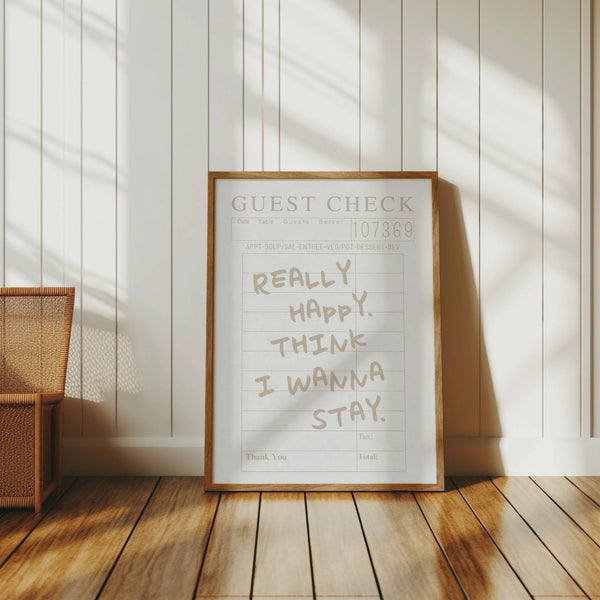 GUEST CHECK
Date Table Guests Server 107369
APPT-SOUP/SAL-ENTREE-VEG/POT-DESSERT-BEV
REALLY
HAPPY.
THINK
I WANNA
STAY.
Tax:
Thank You Total: